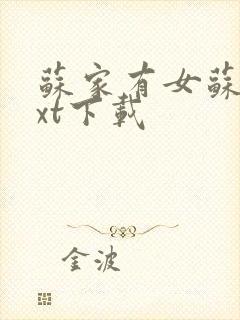 蘇家有女蘇
xt下載
金波